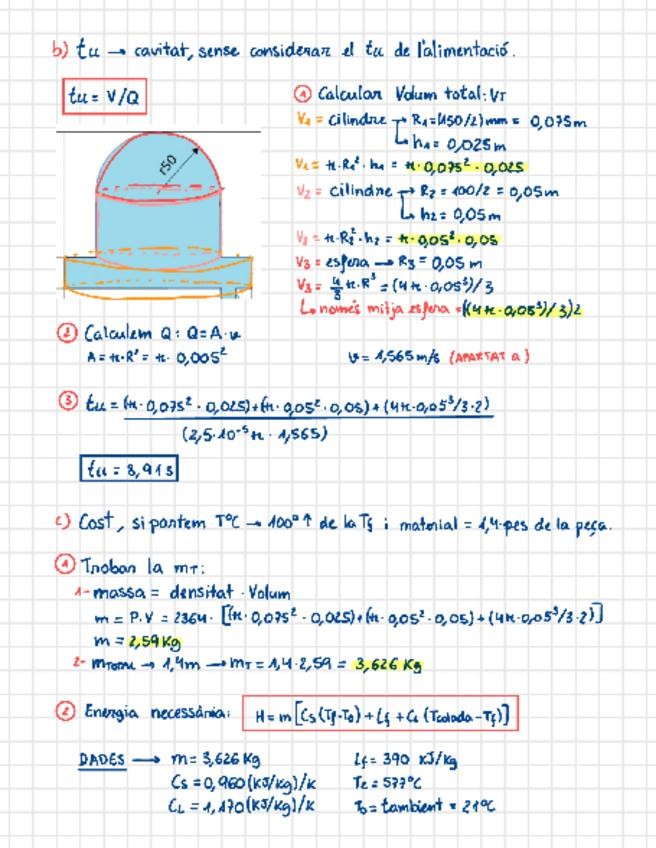 b) tu → cavitat, sense considerar el tu de l'alimentació.
tu = V/Q
① Calcular Volum total: VT
V1 = cilindre → R1 = (150/2) mm = 0,075m
↳ h1 = 0,025m
V1 = π·R1²·h1 = π·0,075²·0,025
V2 = cilindre → R2 = 100/2 = 0,05m
↳ h2 = 0,05m
V2 = π·R2²·h2 = π·0,05²·0,05
V3 = esfera → R3 = 0,05 m
V3 = 4/3 π·R³ = (4π·0,05³)/3
↳ només mitja esfera = ((4π·0,05³)/3)2
r50
② Calculem Q: Q = A·v
A = π·R² = π·0,005²
v = 1,565 m/s (APARTAT a)
③ tu = (π·0,075²·0,025)+(π·0,05²·0,05)+(4π·0,05³/3·2)
(2,5·10⁻⁵π·1,565)
tu = 8,91s
c) Cost, si partem T°C → 100°↑ de la Tf i material = 1,4·pes de la peça.
① Trobar la mT:
1- massa = densitat · Volum
m = P.V = 2364·[(π·0,075²·0,025)+(π·0,05²·0,05)+(4π·0,05³/3·2)]
m = 2,59 Kg
2- mTOTAL → 1,4m → mT = 1,4·2,59 = 3,626 Kg
② Energia necessària: H = m[Cs(Tf-To)+Lf+CL(Tcolada-Tf)]
DADES → m = 3,626 Kg Lf = 390 KJ/Kg
Cs = 0,960 (KJ/Kg)/K Te = 577°C
CL = 1,170 (KJ/Kg)/K To = tambient = 21°C